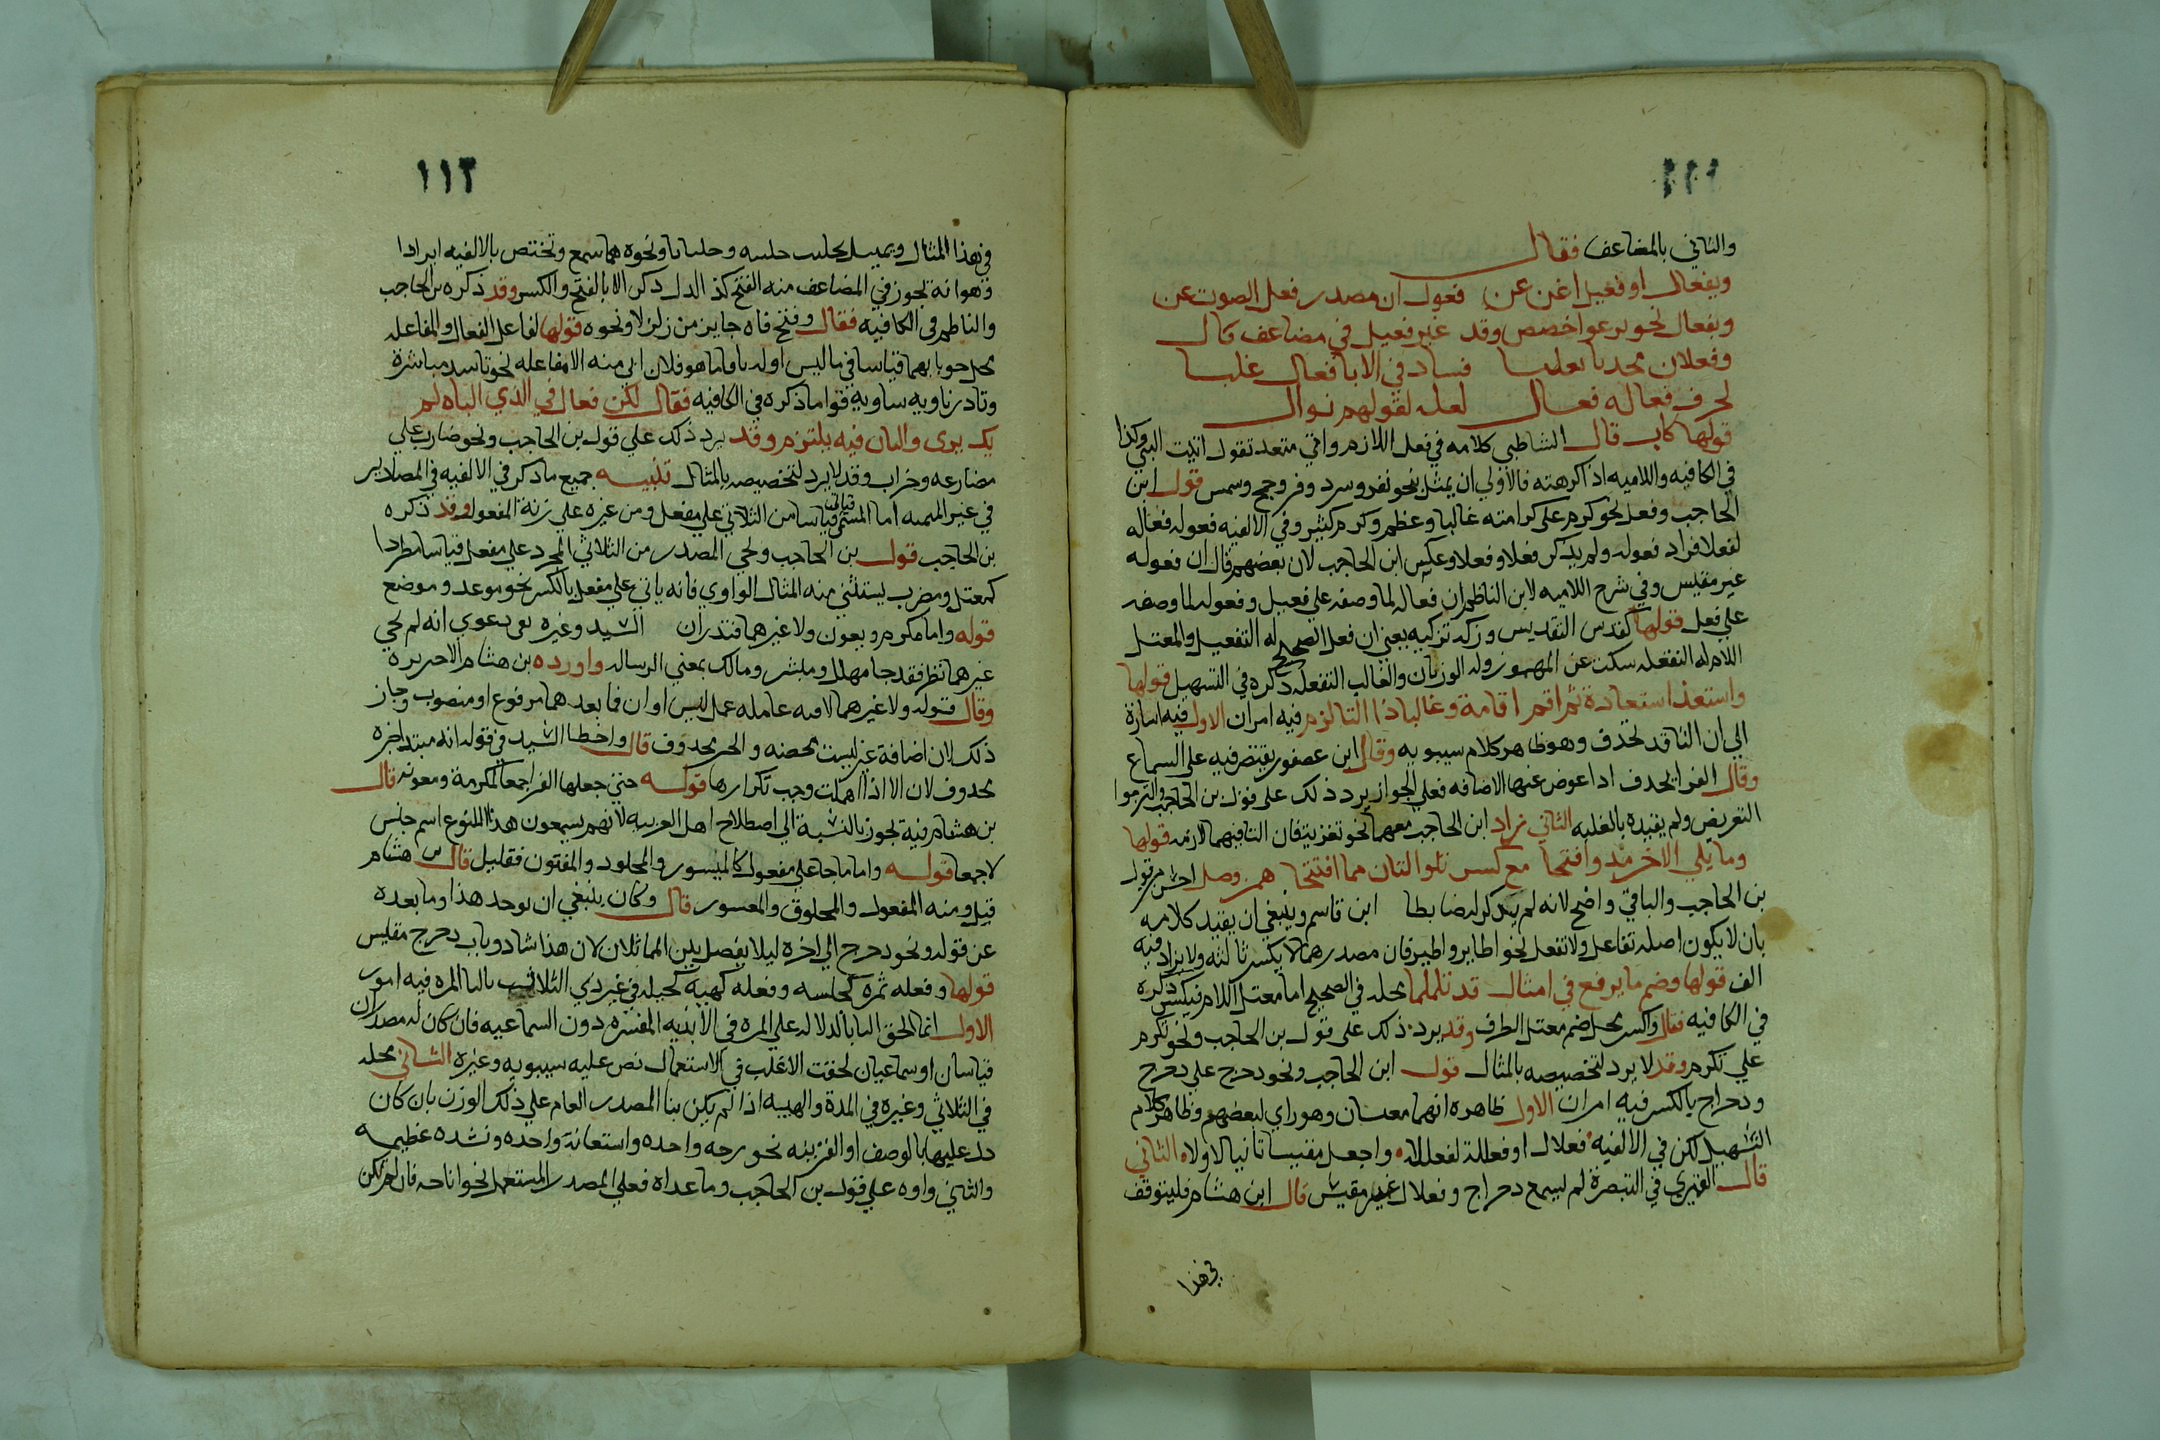 ١١١
والثاني بالمضاعف فقال
وبفعال او فعيل اغن عن فعول ان مصدر فعل الصوت عن
وبفعال نحو برعوا خصص وقد غير فعيل في مضاعف قال
وفعلان فساد في الابا فعال غلبا
لحرف فعاله فعال لعله لقولهم نوال
قولها قال الشاطبي كلامه في فعل اللازم واتي متعد تقول اتيت البني وكذا
في الكافيه واللاميه اذ اكرهته فالاولي ان يمثل بنحو نفر وسرد وفر وجمح وسمس قول ابن
الحاجب وفعل نحو كرم على كرامته غالبا وعظم وكرم كثير وفي الالفيه فعوله فعاله
لفعلا فزاد فعوله ولم يذكر فعلا وفعلا وعكس ابن الحاجب لان بعضهم قال ان فعوله
غير مقيس وفي شرح اللاميه لابن الناظم ان فعاله لما وصفه على فعيل وفعوله لما وصفه
علي فعل قولها كقدس التقديس وزكه تزكيه يعني ان فعل الصحيح له التفعيل والمعتل
اللام له التفعله سكت عن المهموز وله الوزنان والغالب التفعله ذكره في التسهيل قولها
واستعذ استعاذة ثم اقم اقامة وغالبا ذا التا لزم فيه امران الاول فيه اشارة
الي ان التا قد تحذف وهو ظاهر كلام سيبويه وقال ابن عصفور يقتصر فيه على السماع
وقال الفرا يحدف اذا عوض عنها الاضافه فعلي الجواز يرد ذلك على قول بن الحاجب والتزموا
التعويض ولم يقيده بالغلبه الثاني زاد ابن الحاجب معهما نحو تعزيه فان التا فيهما لازمه قولها
وما يلي الاخر مد وافتحا مع كسر تلو الثان مما افتتحا همز وصل احسن من قول
بن الحاجب والباقي واضح لانه لم يذكر له ضابطا ابن قاسم وينبغي ان يقيد كلامه
بان لا يكون اصله تفاعل ولا تفعل نحو اطاير واطير فان مصدرهما لا يكسر ثالثه ولا يزاد فيه
الف قولها وضم ما يربع في امثال قد تلملما محله في الصحيح اما معتل اللام فيكسر ذكره
في الكافيه فقال واكسر محل ضم معتل الطرف وقد يرد ذلك على قول بن الحاجب ونحو تكرم
علي تكرم وقد لا يرد لتخصيصه بالمثال قول ابن الحاجب ونحو دحرج على دحرج
ودحراج بالكسر فيه امران الاول ظاهره انهما مقيسان وهو راي لبعضهم وظاهر كلام
التسهيل لكن في الالفيه فعلال او فعللة لفعللا واجعل مقيسا ثانيا لا اولا الثاني
قال الصيمري في التبصرة لم يسمع دحراج وفعلال غير مقيس قال ابن هشام فليتوقف
في هذا
١١٢
في هذا المثال ويميل نحو جلبب جلببه وجلبابا ونحوه مما سمع وتختص بالالفيه ايرادا
وهو انه يجوز في المضاعف منه الفتح والكسر وقد ذكره بن الحاجب
والناظم في الكافيه فقال وفتح فاه جايز من زلزلا ونحوه قولها لفاعل الفعال والمفاعله
قياسا فيما ليس اوله يا فاما هو فلان ابي منه الا مفاعله مباشرة
ذكره في الكافيه فقال لكن فعال في الذي الياء لم
يك يرى والثان فيه يلتزم وقد يرد ذلك علي قول بن الحاجب ونحو ضارب علي
مضارعه وضراب وقد لا يرد لتخصيصه بالمثال تنبيه جميع ما ذكر في الالفيه في المصادير
في غير الميميه اما الميمي فياتي قياسا من الثلاثي علي مفعل ومن غيره علي زنة المفعول وقد ذكره
بن الحاجب قول بن الحاجب ويجي المصدر من الثلاثي المجرد علي مفعل قياسا مطردا
كمقتل ومضرب يستثني منه المثال الواوي فانه ياتي علي مفعل بالكسر نحو موعد وموضع
قوله واما مكرم ومعون ولا غيرهما فنادران السيد وغيره دعوي انه لم يجي
غيرهما نظر فقد جا مهلك وميسر ومالك بمعني الرساله واورده بن هشام
وقال قوله ولا غيرهما لا فيه عامله عمل ليس او ان فما بعدهما مرفوع او منصوب وجاز
ذلك لان اضافة غير ليست محضه والخبر محذوف قال واخطا السيد في قوله انه مبتدا خبره
محذوف لان لا اذا اهملت وجب تكرارها قوله حتي جعلها الفرا جمعا لمكرمة ومعونه قال
بن هشام فيه تجوز بالنسبة الي اصطلاح اهل العربيه لانهم يسمون هذا النوع اسم جنس
لا جمعا قوله واما ما جا علي مفعول كالميسور والمجلود والمفتون فقليل قال بن هشام
قيل ومنه المفعول والمحلوق والمعسور قال وكان ينبغي ان يوحد هذا وما بعده
عن قوله ونحو دحرج الي اخره ليلا يفصل بين المماثلان لان هذا شاذ وباب دحرج مقيس
قولها وفعله لمره كجلسه وفعله لهية كجلسه في غير ذي الثلاث بالتا المره فيه امور
الاول انما تلحق التا بالدلاله علي المره في الابنيه المقيسه دون السماعيه فان كان له مصدران
قياسان او سماعيان لحقت الاغلب في الاستعمال نص عليه سيبويه وغيره الثاني محله
في الثلاثي وغيره في المدة والهيه اذا لم يكن بنا المصدر العام علي ذلك الوزن بان كان
دل عليها بالوصف او القرينه نحو رحمه واحده واستعانة واحده ونشده عظيمه
والثاني واوه علي قول بن الحاجب وما عداه فعلي المصدر المستعمل نحو اناخه فان لم تكن